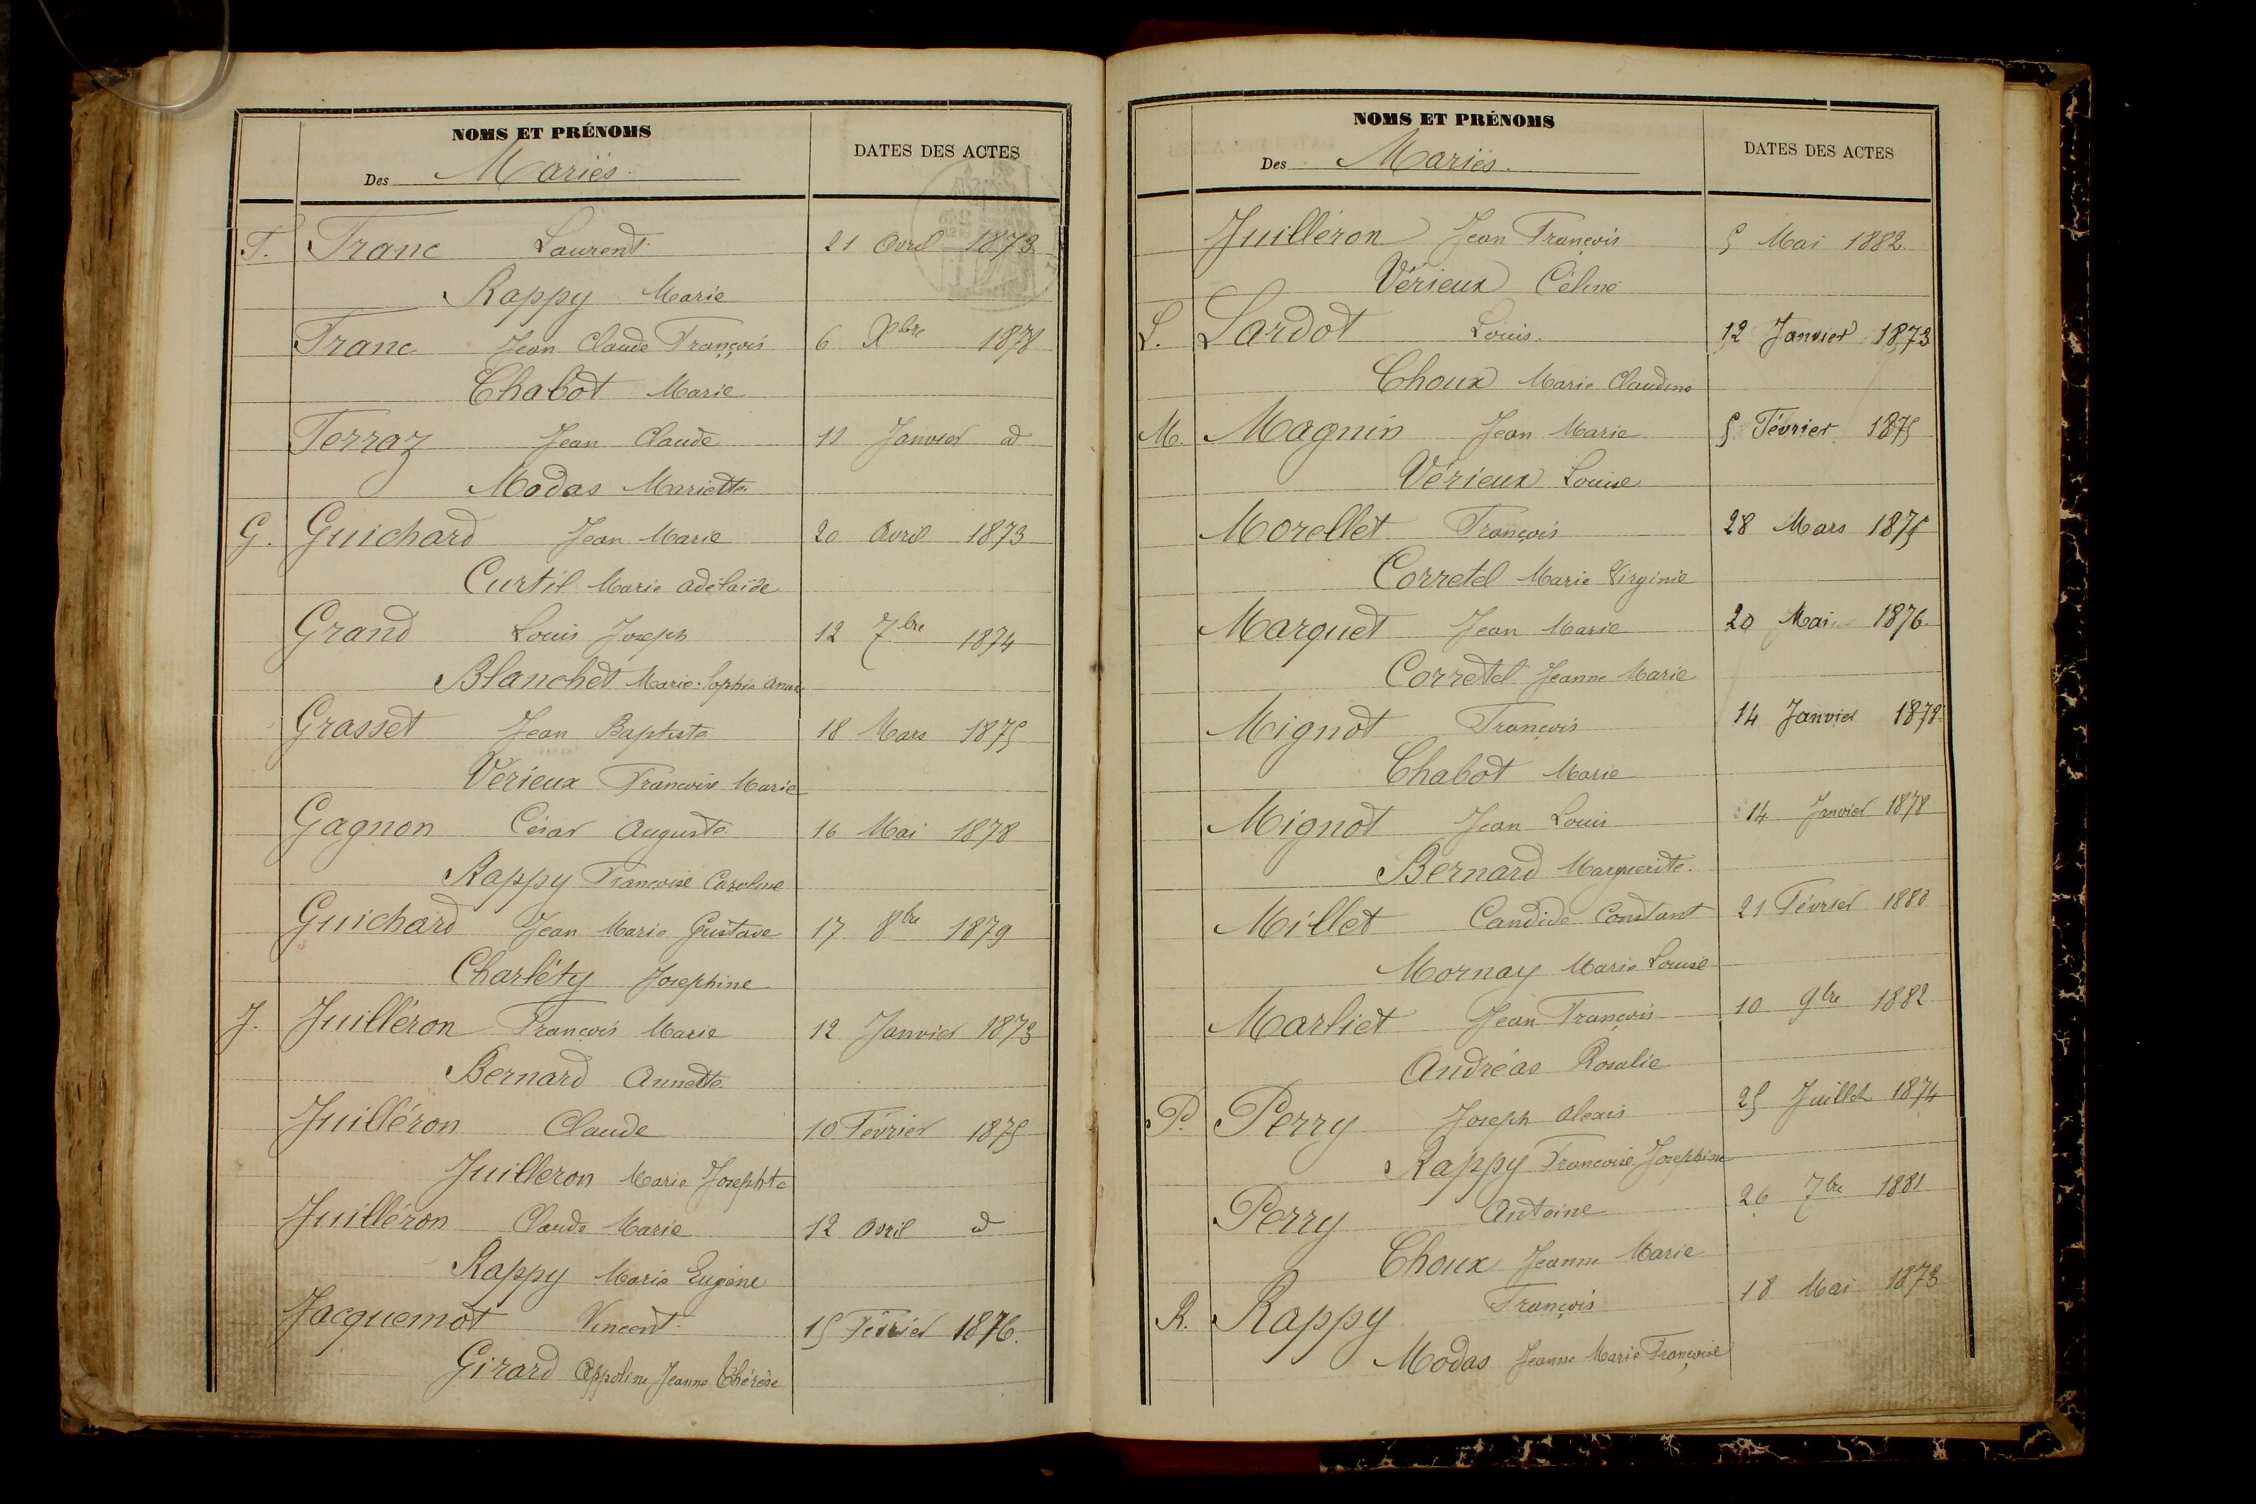 NOMS ET PRÉNOMS
Des Mariés.
DATES DES ACTES
F. Franc Laurent 21 Avril 1873
Rappy Marie
Franc Jean Claude François 6 Xbre 1878
Chabot Marie
Ferraz Jean Claude 11 Janvier d
Modas Mariette
G. Guichard Jean Marie 20 Avril 1873
Curtil Marie Adélaïde
Grand Louis Joseph 12 7bre 1874
Blanchet Marie Sophie Anne
Grasset Jean Baptiste 18 Mars 1875
Vérieux Francoise Marie
Gagnon César Auguste 16 Mai 1878
Rappy Francoise Caroline
Guichard Jean Marie Gustave 17 8bre 1879
Charléty Josephine
J. Juilléron François Marie 12 Janvier 1873
Bernard Annette
Juilléron Claude 10 Février 1875
Juilleron Marie Josephte
Juilléron Claude Marie 12 Avril d
Rappy Marie Eugène
Jacquemot Vincent 15 Février 1876.
Girard Appoline Jeanne Thérèse
NOMS ET PRÉNOMS
Des Mariés.
DATES DES ACTES
Juilléron Jean François 5 Mai 1882.
Vérieux Céline
L. Lardot Louis. 12 Janvier 1873
Choux Marie Claudine
M. Magnin Jean Marie 5 Février 1875
Vérieux Louise
Morellet François 28 Mars 1875
Corretel Marie Virginie
Marquet Jean Marie 20 Mai 1876.
Corretel Jeanne Marie
Mignot François 14 Janvier 1878.
Chabot Marie
Mignot Jean Louis 14 Janvier 1878
Bernard Marguerite.
Millet Candide Constant 21 Février 1880
Mornay Marie Louise
Marliet Jean François 10 9bre 1882
Andréas Rosalie
P. Perry Joseph Alexis 25 Juillet 1874
Rappy Francoise Josephine
Perry Antoine 26 7bre 1881
Choux Jeanne Marie
R. Rappy François 18 Mai 1873
Modas Jeanne Marie Françoise